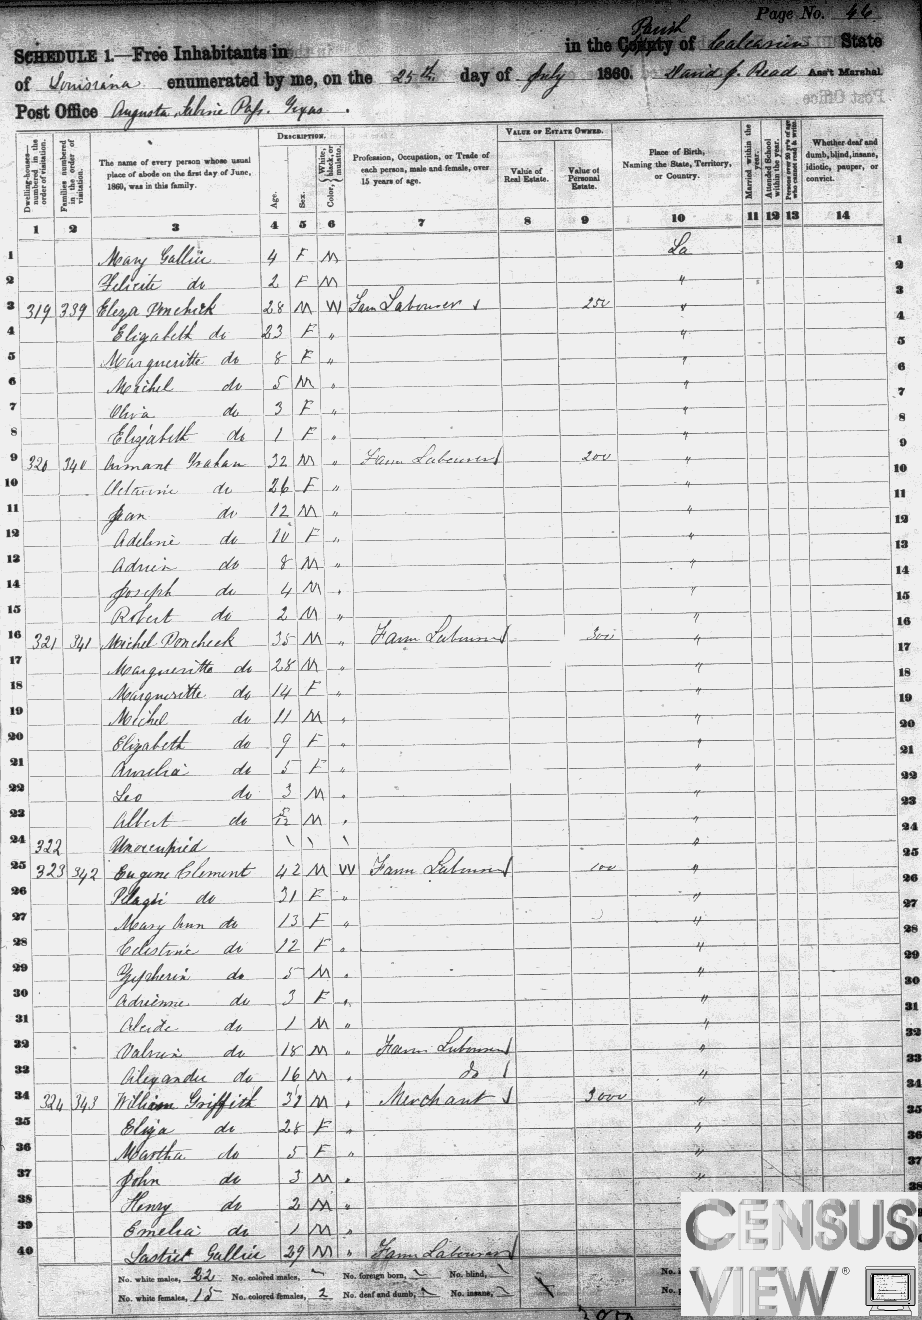 Page No. 46
SCHEDULE 1.—Free Inhabitants in in the County Parish of Calcasieu State
of Louisiana enumerated by me, on the 25th day of July 1860. David J. Read Ass't Marshal.
Post Office Augusta Sabine Pass, Texas.
Dwelling-houses—numbered in the order of visitation.
Families numbered in the order of visitation.
The name of every person whose usual place of abode on the first day of June, 1860, was in this family.
DESCRIPTION.
Age.
Sex.
Color, White, black, or mulatto.
Profession, Occupation, or Trade of each person, male and female, over 15 years of age.
VALUE OF ESTATE OWNED.
Value of Real Estate.
Value of Personal Estate.
Place of Birth, Naming the State, Territory, or Country.
Married within the year.
Attended School within the year.
Persons over 20 y'rs of age who cannot read & write.
Whether deaf and dumb, blind, insane, idiotic, pauper, or convict.
1 2 3 4 5 6 7 8 9 10 11 12 13 14
1 Mary Gallier 4 F M La 1
2 Felicite do 2 F M " 2
3 319 339 Eleza Poncheck 28 M W Farm Labourer 250 " 3
4 Elizabeth do 23 F " " 4
5 Margueritte do 8 F " " 5
6 Michel do 5 M " " 6
7 Oliva do 3 F " " 7
8 Elizabeth do 1 F " " 8
9 320 340 Armant Grahan 32 M " Farm Labourer 200 " 9
10 Octavine do 26 F " " 10
11 Jean do 12 M " " 11
12 Adeline do 10 F " " 12
13 Adrien do 8 M " " 13
14 Joseph do 4 M " " 14
15 Robert do 2 M " " 15
16 321 341 Michel Poncheck 35 M " Farm Labourer 300 " 16
17 Margueritte do 28 M " " 17
18 Margueritte do 14 F " " 18
19 Michel do 11 M " " 19
20 Elizabeth do 9 F " " 20
21 Aurelia do 5 F " " 21
22 Leo do 3 M " " 22
23 Albert do 5/12 M " " 23
24 322 Unoccupied \ \ \ " 24
25 323 342 Eugene Clement 42 M W Farm Labourer 100 " 25
26 Pelagie do 31 F " " 26
27 Mary Ann do 13 F " " 27
28 Celestine do 12 F " " 28
29 Zepherin do 5 M " " 29
30 Adrienne do 3 F " " 30
31 Alcide do 1 M " " 31
32 Valmin do 18 M " Farm Labourer " 32
33 Alexandre do 16 M " do " 33
34 324 343 William Griffith 37 M " Merchant 3000 " 34
35 Eliza do 28 F " " 35
36 Martha do 5 F " " 36
37 John do 3 M " " 37
38 Henry do 2 M " 38
39 Emelia do 1 M "
40 Gallier 29 M " Farm Labourer
No. white males, 22 No. colored males, No. foreign born, No. blind,
No. white females, 15 No. colored females, 2 No. deaf and dumb, No. insane,
CENSUS
VIEW®